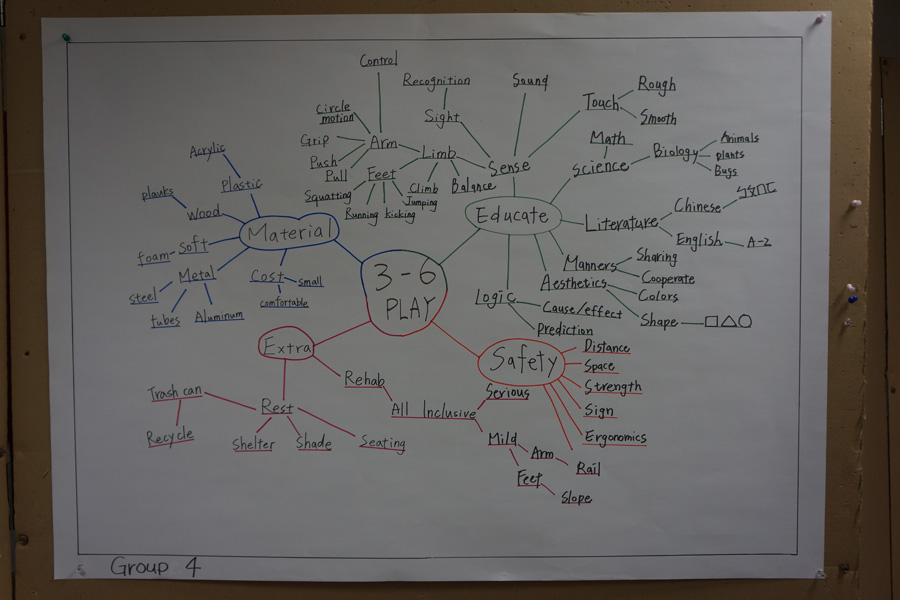 Control
Recognition
Sound
Rough
Touch
Smooth
Circle
motion
Sight
Grip
Arm
Limb
Sense
Math
Science
Biology
Animals
plants
Bugs
Push
Pull
Feet
Squatting
Running
kicking
Jumping
Climb
Balance
Acrylic
Plastic
planks
Wood
foam
Soft
Metal
steel
tubes
Aluminum
Material
Cost
small
comfortable
Educate
Literature
Chinese
ㄅㄆㄇㄈ
English
A-Z
Manners
Sharing
Cooperate
Aesthetics
Colors
Shape
Logic
Cause/effect
Prediction
3-6
PLAY
Extra
Rehab
All Inclusive
Serious
Mild
Arm
Rail
Feet
Slope
Trash can
Recycle
Rest
Shelter
Shade
Seating
Safety
Distance
Space
Strength
Sign
Ergonomics
Group 4